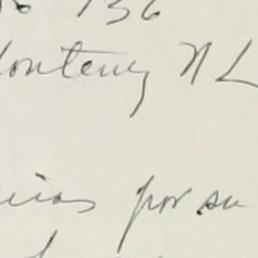 136
Monterrey N L
cias por su